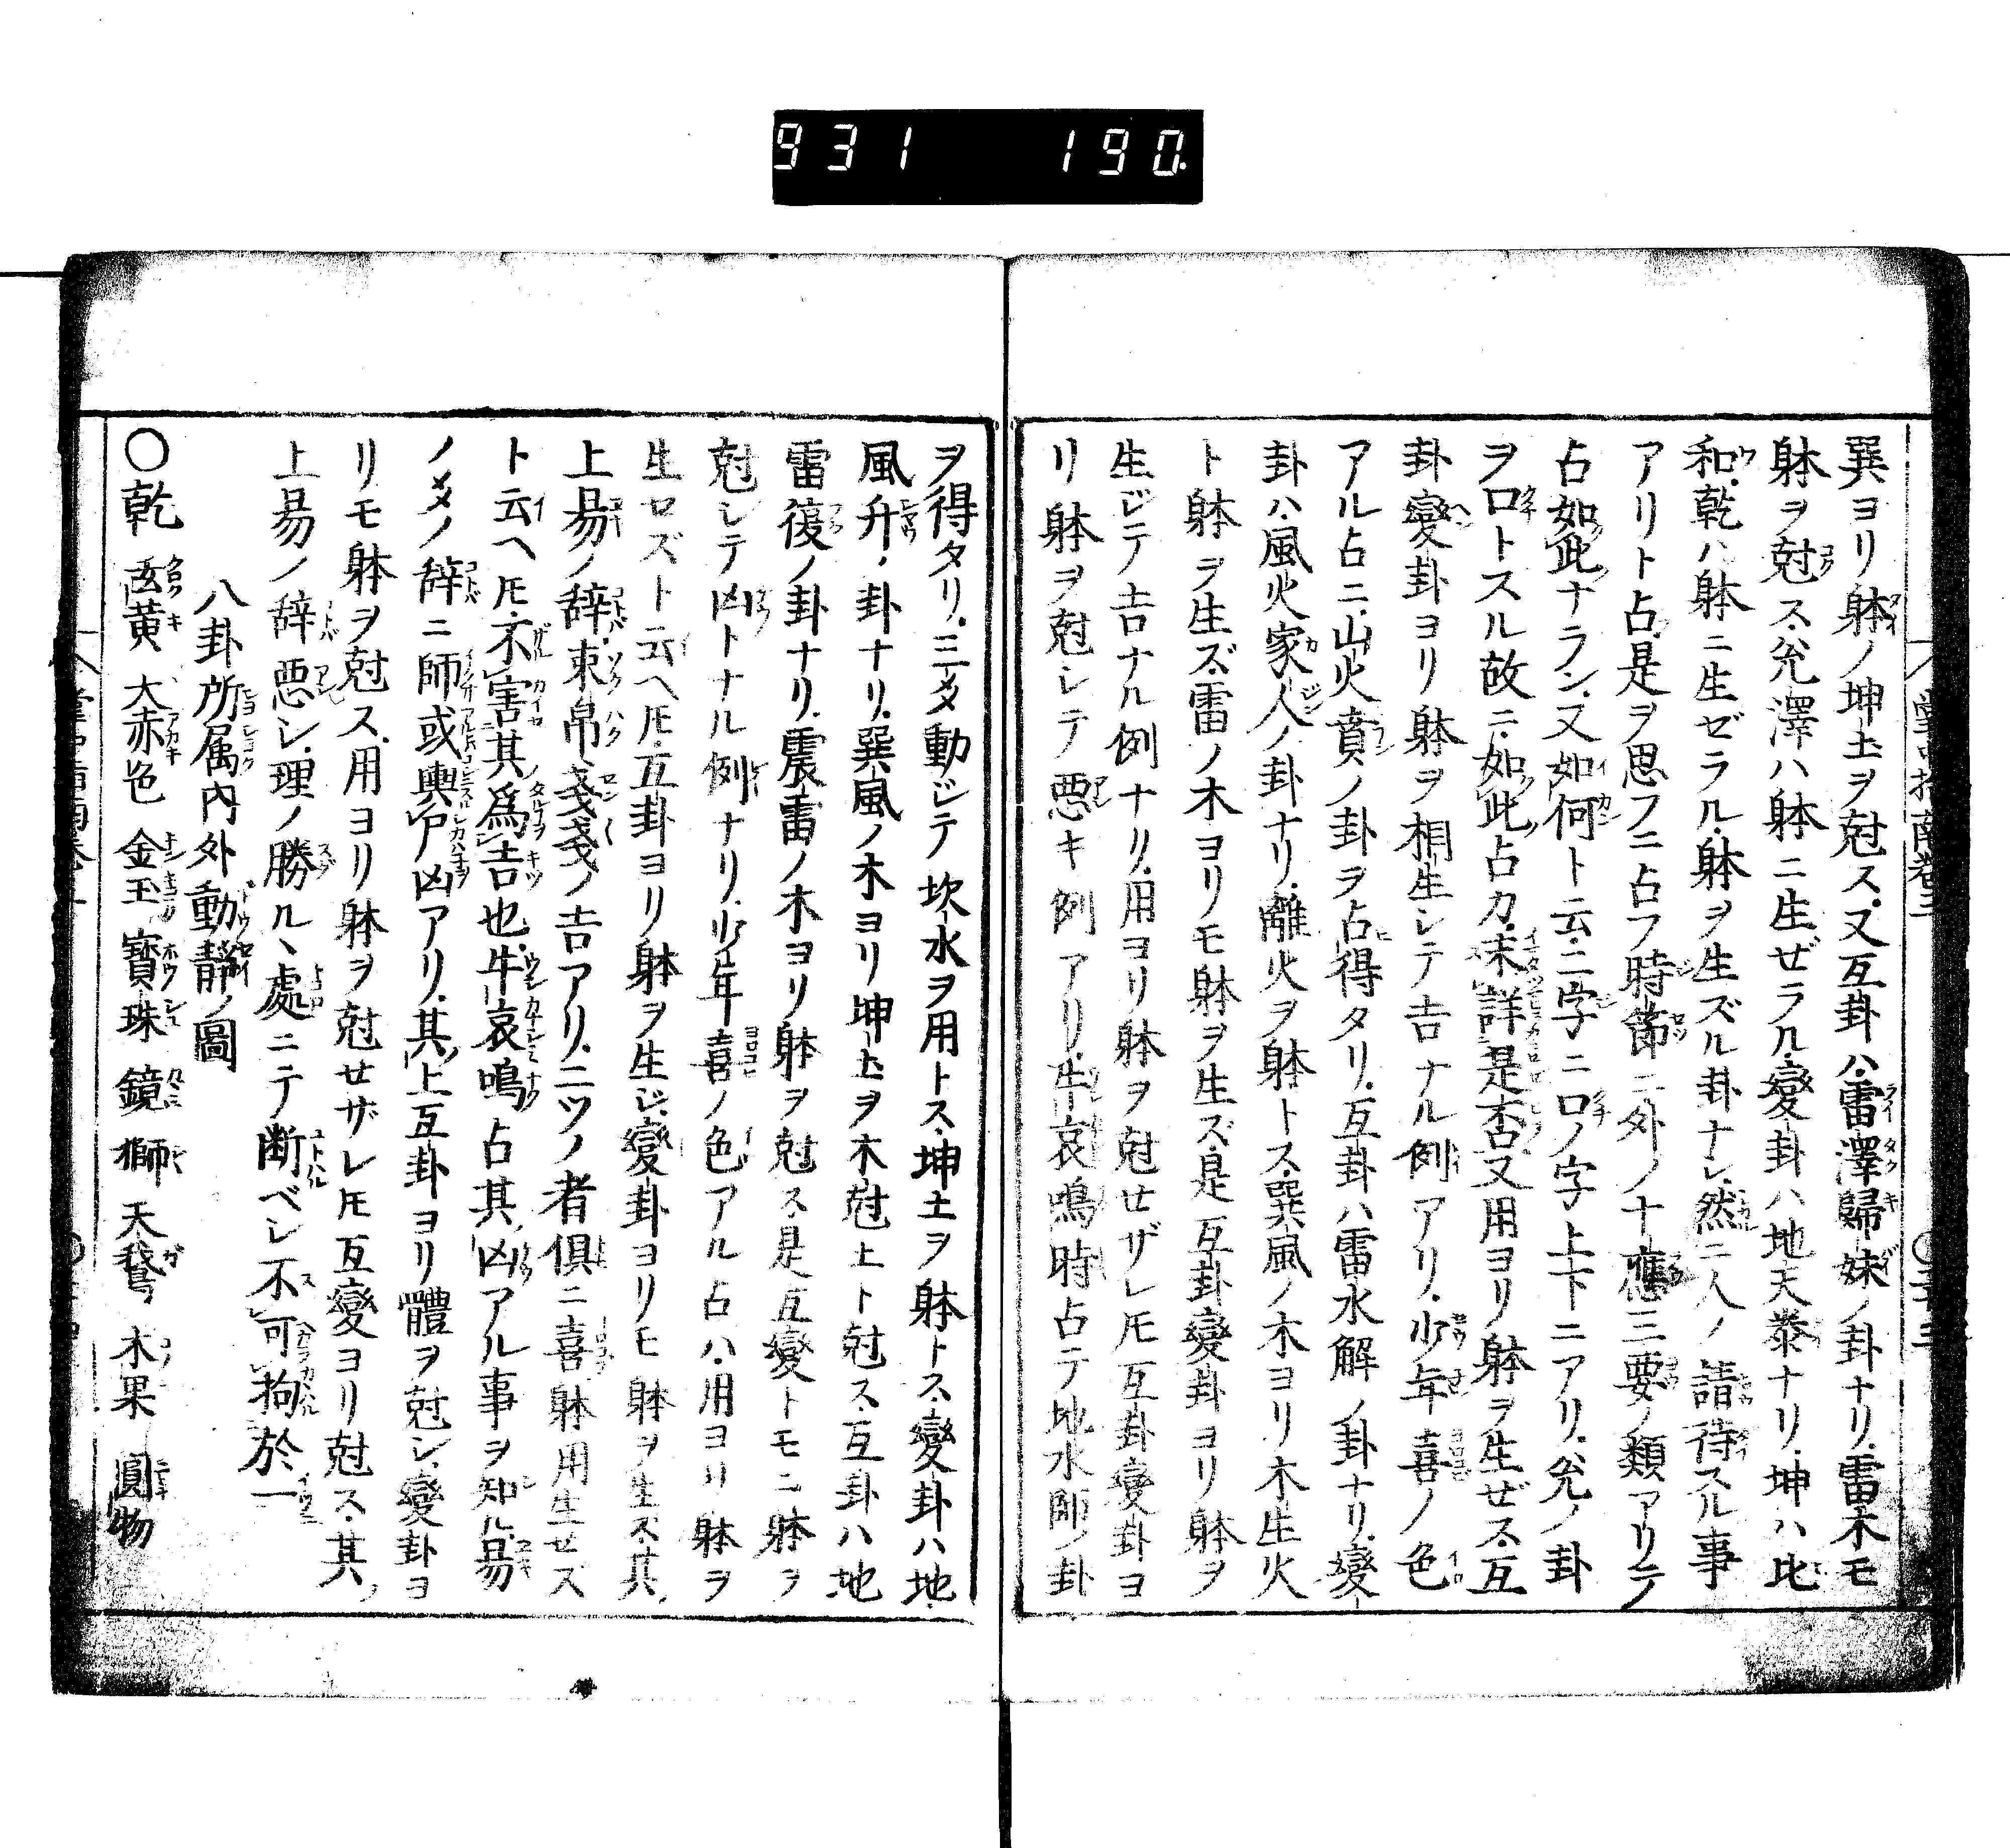 931 190
巽ヨリ躰ノ坤土ヲ尅ス又互卦ハ雷澤歸妹ノ卦ナリ雷木モ
躰ヲ尅ス兊澤ハ躰ニ生ゼラル變卦ハ地天泰ナリ坤ハ比
和乾ハ躰ニ生ゼラル躰ヲ生ズル卦ナレ然ニ人ノ請待スル事
アリト占是ヲ思フニ占フ時節ニ外ノ十應三要ノ類アリテ
占如此ナラン又如何ト云二字ニ口ノ字上下ニアリ兊ノ卦
ヲ口トスル故ニ如此占カ未詳是否又用ヨリ躰ヲ生ぜズ互
卦變卦ヨリ躰ヲ相生レテ吉ナル例アリ少年喜ノ色
アル占ニ山火賁ノ卦ヲ占得タリ互卦ハ雷水解ノ卦ナリ變
卦ハ風火家人ノ卦ナリ離火ヲ躰トス巽風ノ木ヨリ木生火
ト躰ヲ生ズ雷ノ木ヨリモ躰ヲ生ズ是互卦變卦ヨリ躰ヲ
生ジテ吉ナル例ナリ用ヨリ躰ヲ尅せザレ𪜈互卦變卦ヨ
リ躰ヲ尅レテ悪キ例アリ牛哀鳴時占テ地水師ノ卦
ヲ得タリ三爻動ジテ坎水ヲ用トス坤土ヲ躰トス變卦ハ地
風升ノ卦ナリ巽風ノ木ヨリ坤土ヲ木尅土ト尅ス互卦ハ地
雷復ノ卦ナリ震雷ノ木ヨリ躰ヲ尅ス是互變トモニ躰ヲ
尅レテ凶トナル例ナリ少年喜ノ色アル占ハ用ヨリ躰ヲ
生ロズト云ヘ𪜈互卦ヨリ躰ヲ生ジ變卦ヨリモ躰ヲ生ス其
上昜ノ辞束帛戔戔ノ吉アリ二ツノ者俱ニ喜躰用生せズ
ト云ヘ𪜈不害其爲吉也牛哀鳴占其凶アル事ヲ知ル昜
ノメノ辞ニ師或輿尸凶アリ其上互卦ヨリ體ヲ尅シ變卦ヨ
リモ躰ヲ尅ス用ヨリ躰ヲ尅せザレ𪜈互變ヨリ尅ス其
上昜ノ辞悪シ理ノ勝ル處ニテ断ベレ不可拘於一
八卦所属内外動静ノ圖
〇乾 玄黄 大赤色 金玉 寳珠 鏡 獅 天鵞 木果 圓物